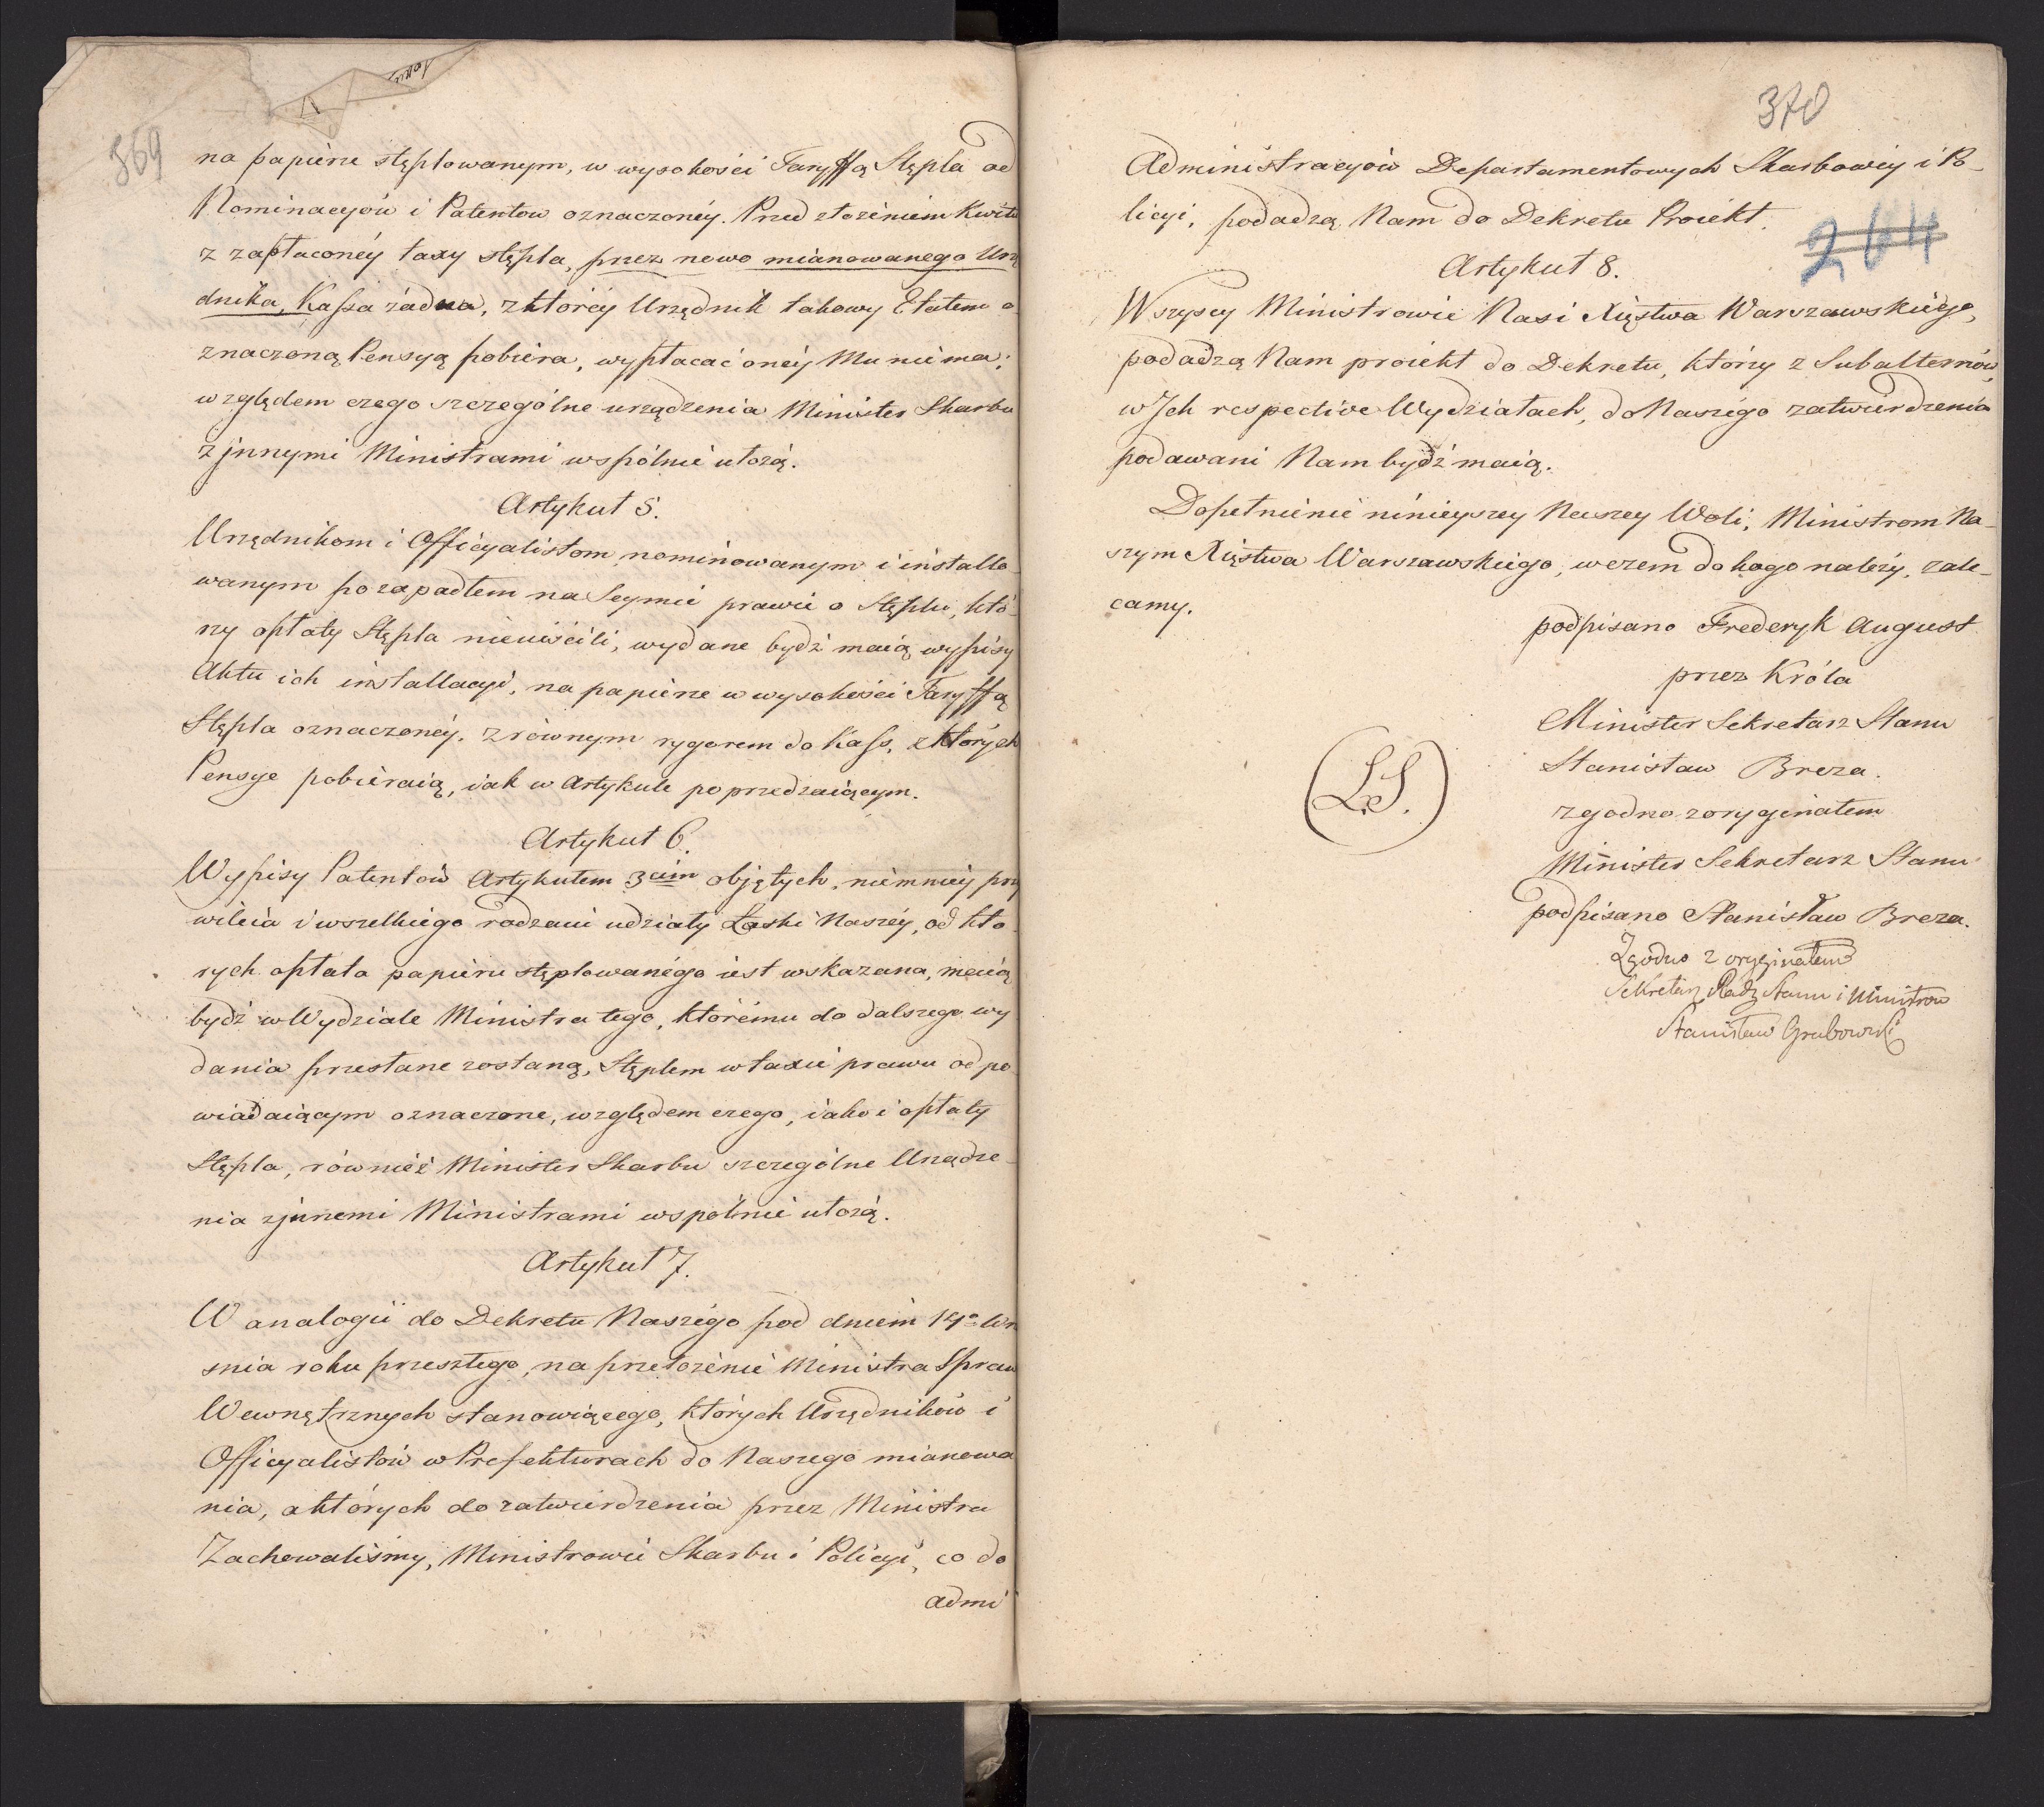 369
na papierze stęplowanym, w wysokości Taryffą Stępla od
Nominacyów i Patentow oznaczonéy. Przed złożeniem Kwitu
z zapłaconéy taxy stępla, przez nowo mianowanego Urzę
dnika, Kassa żadna, z któréy Urzędnik takowy Etatem o
znaczoną Pensyą pobiera, wypłacać onéy Mu niema;
względem czego szczególne urządzenia Minister Skarbu
z jnnymi Ministrami wspólnie ułożą.
Artykuł 5.
Urzędnikom i Officyalistom nominowanym i installo
wanym po zapadłem na Seymie prawie o Stęplu, któ-
rzy opłaty Stępla nieuiścili, wydane bydź maią wypisy
Aktu ich installacyi, na papierze w wysokości Taryffą
Stępla oznaczonéy, z równym rygorem do Kass, z których
Pensye pobieraią, iak w Artykule poprzedzaiącym.
Artykuł 6.
Wypisy Patentów Artykułem 3cim objętych, niemniéy przy
wileia i wszelkiego rodzaiu udziały Łaski Naszéy, od któ
rych opłata papieru stęplowanégo iest wskazana, maią
bydź w Wydziale Ministra tego, któremu do dalszego wy
dania przesłane zostaną, Stęplem w taxie prawu odpo
wiadaiącym oznaczone, względem czego, iako i opłaty
Stępla, równiéż Minister Skarbu szczególne Urządze-
nia z jnnemi Ministrami wspólnie ułożą.
Artykuł 7.
W analogii do Dekretu Naszégo pod dniem 14o Wrze
śnia roku przeszłego, na przełożenie Ministra Spraw
Wewnętrznych stanowiącego, których Urzędników i
Officyalistów w Prefekturach do Naszego mianowa
nia, a których do zatwierdzenia przez Ministra
Zachowaliśmy, Ministrowie Skarbu i Policyi, co do
admi
370
Administracyów Departamentowych Skarbowéy i Po-
licyi, podadzą Nam do Dekretu Proiekt.
264
Artykuł 8.
Wszyscy Ministrowie Nasi Xięstwa Warszawskiégo,
podadzą Nam proiekt do Dekretu, którzy z Subalternów,
w Jch respective Wydziałach, do Naszégo zatwierdzenia
podawani Nam bydź maią.
Dopełnienie ninieyszey Naszey Woli, Ministrom Na-
szym Xięstwa Warszawskiego, w czem do kogo należy, zale-
camy.
podpisano Frederyk August
przez Króla
Minister Sekretarz Stanu
(L.S.)
Stanisław Breza.
zgodno z oryginałem
Minister Sekretarz Stanu
podpisano Stanisław Breza.
Zgodno z oryginałem
Sekretarz Rady Stanu i Ministrow
Stanisław Grabowski